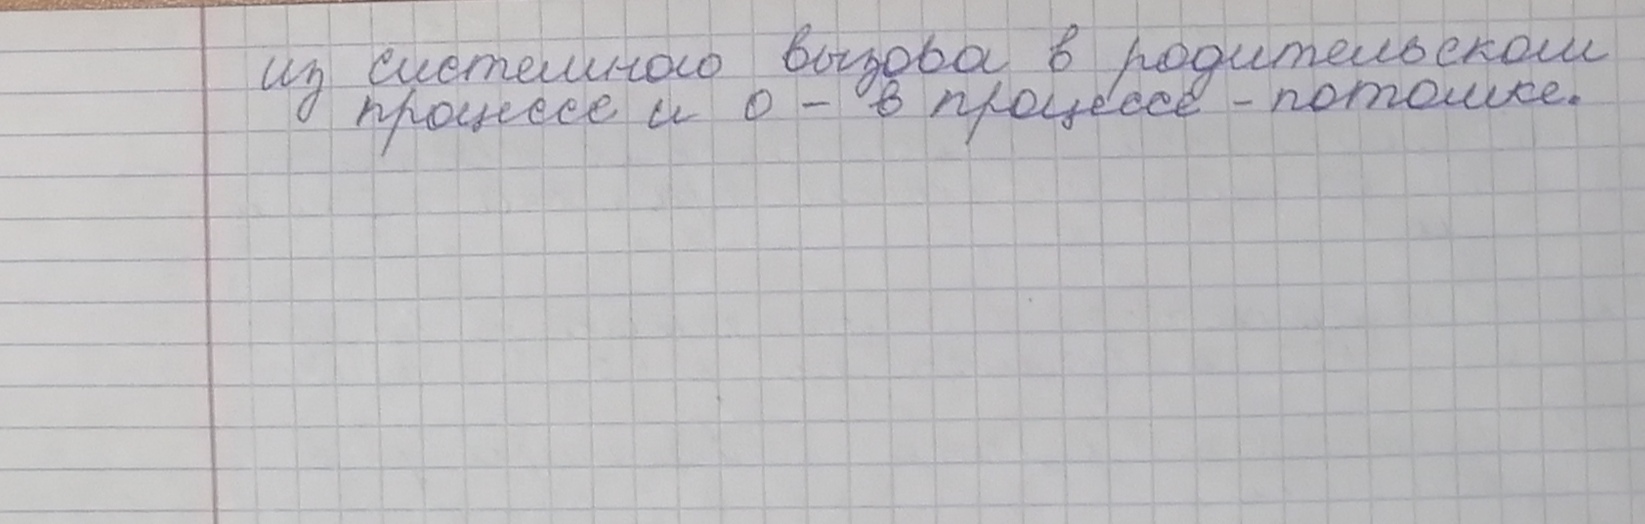 из системного вызова в родительском
процессе и 0 - в процессе - потомке.